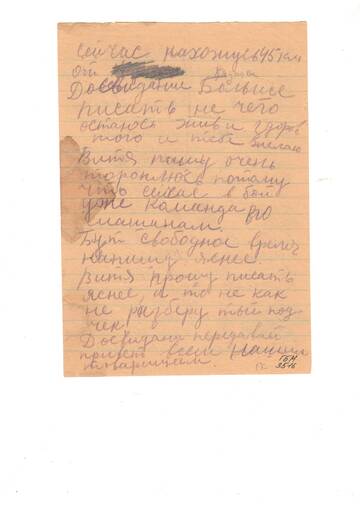 сейчас нахожусь 45 км
от
Досвидания Больше
писать не чего
остаюсь жив и здоров
того и тебе желаю
Витя пишу очень
тороплюсь потому
что сейчас в бой
уже команда по
машинам.
Бут свободное время
напишу яснее.
Витя прошу писать
яснее, а то не как
не разберу твой под
чек.
Досвидания передавай
привет всем нашим
товарищам.
ГБМ
3516